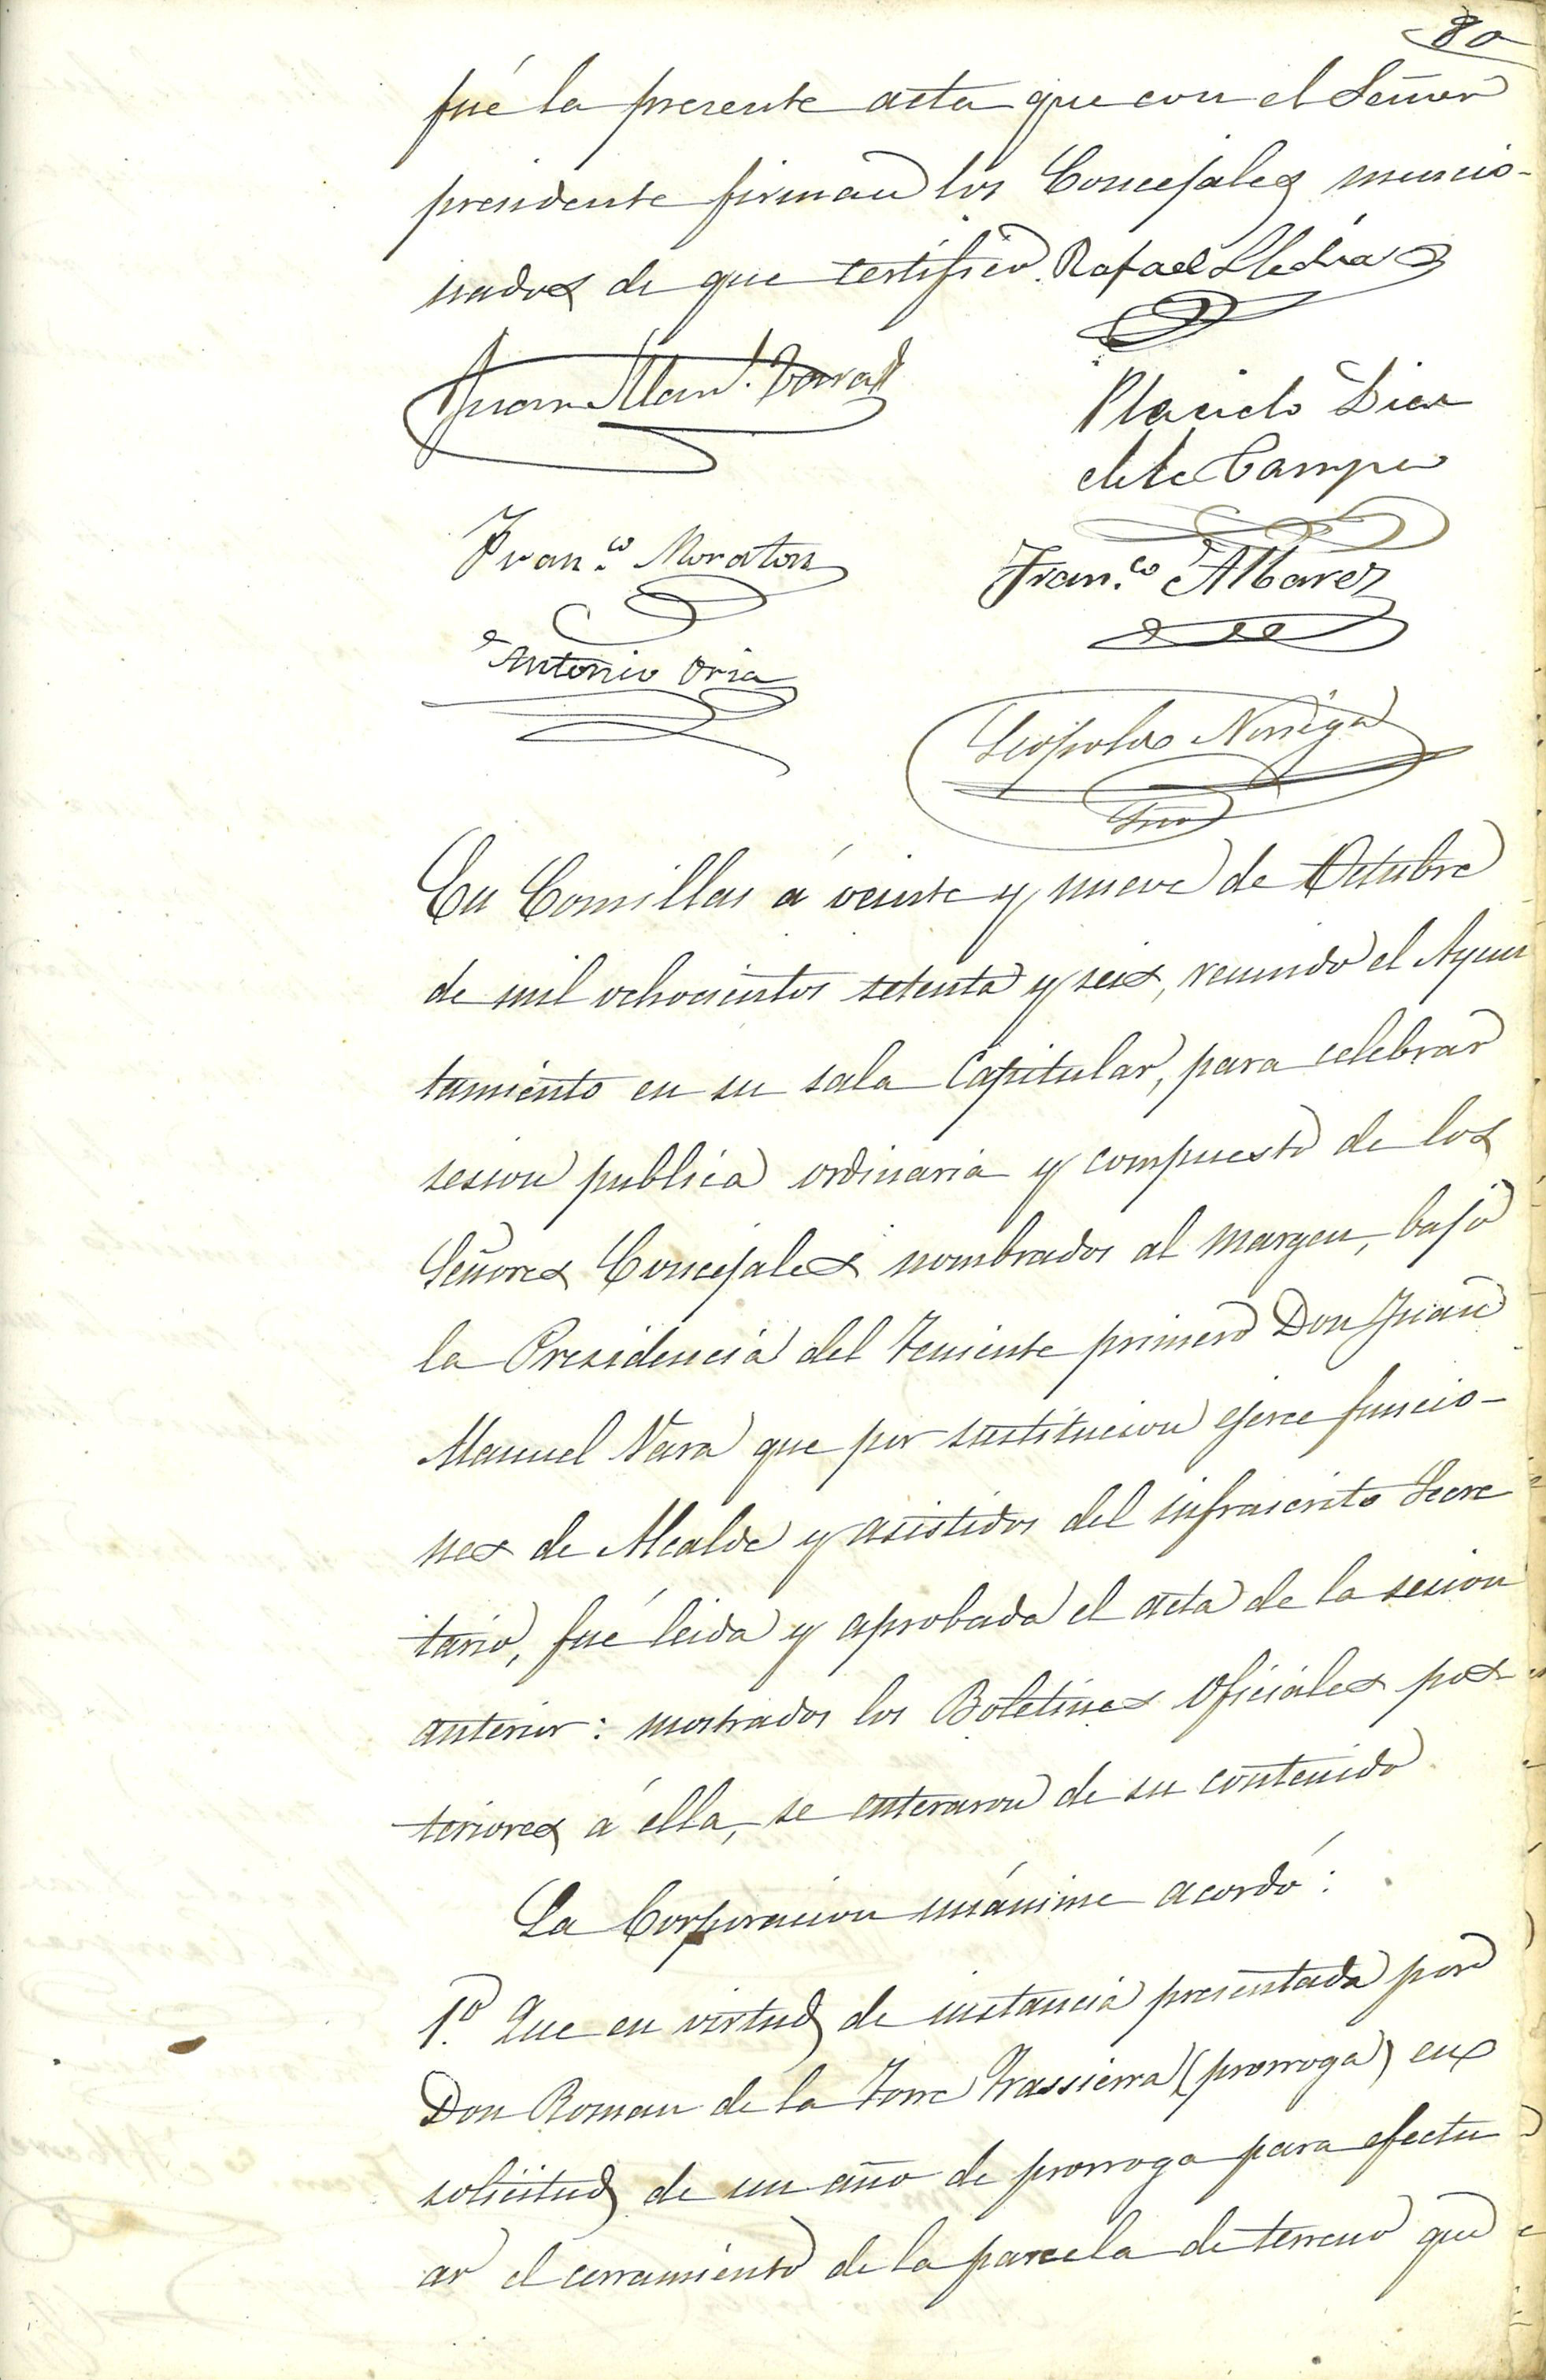 80
fué la presente acta que con el Señor
presidente firman los Concejales mencio-
nados de que certifico. Rafael
Juan Man.l Vara
Placido Diaz
de la Campa
Fran.co Moraton
Fran.co Albarez
Antonio Oria
Leopoldo Noriega
Srio
En Comillas á veinte y nueve de Octubre
de mil ochocientos setenta y seis, reunido el Ayun
tamiento en su sala Capitular, para celebrar
sesion publica ordinaria y compuesto de los
Señores Concejales nombrados al margen, bajo
la Presidencia del Teniente primero Don Juan
Manuel Vara que por sustitucion ejerce funcio-
nes de Alcalde y asistidos del infrascrito Secre
tario, fué leida y aprobada el acta de la sesion
anterior: mostrados los Boletines Oficiales pos-
teriores á ella, se enteraron de su contenido.
La Corporacion unánime acordó:
1.º Que en virtud de instancia presentada por
Don Roman de la Torre Trassierra (prorroga) en
solicitud de un año de prorroga para efectu
ar el cerramiento de la parcela de terreno que